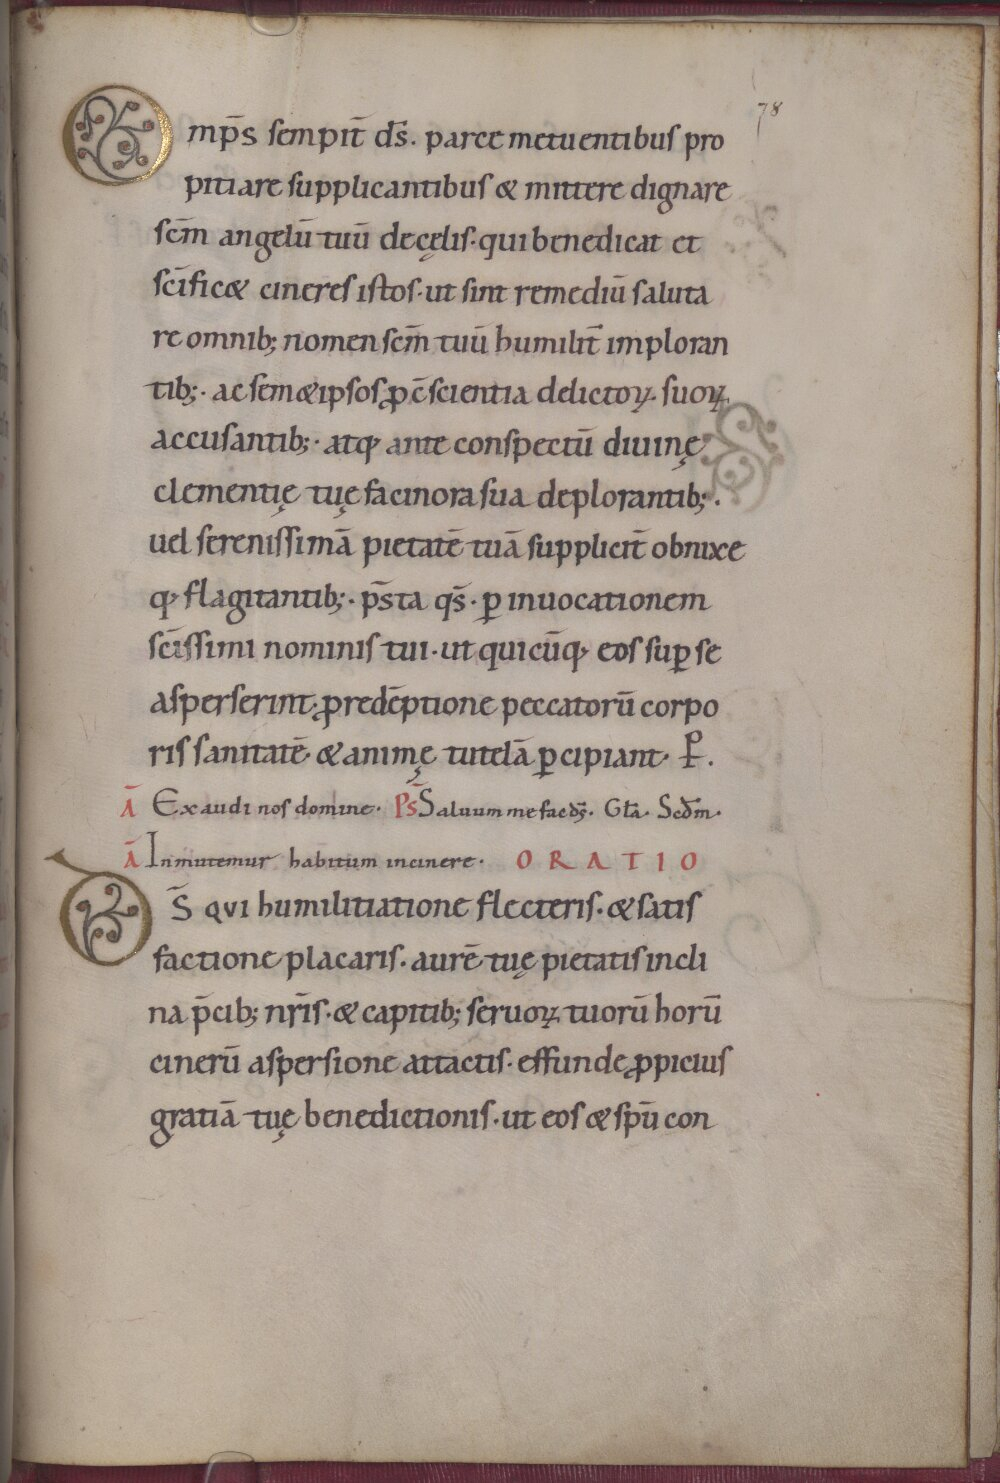 78
Omp̄s sempit̄ ds̄. parce metuentibus pro
pitiare supplicantibus & mittere dignare
scm̄ angelū tuū de cęlis· qui benedicat et
scīfic& cineres istos· ut sint remediū saluta
re omnib; nomen scm̄ tuū humilit̄ imploran
tib;· ac sem&ipsos ꝓ c̄scientia delictoꝝ· suoꝝ
accusantib;· atq; ante conspectū diuinę
clementię tuę facinora sua deplorantib;·
uel serenissimā pietatē tuā supplicit̄ obnixe
q; flagitantib;· p̄sta qs̄· ꝑ inuocationem
scīssimi nominis tui· ut quicūq; eos suꝑ se
asperserint· ꝓ redēptione peccatorū corpo
ris sanitatē· & animę tutelā ꝑcipiant· P̱.
Ā Exaudi nos domine· Ps̄ Saluum me fac ds̄· Gl̄a· Scd̄m·
Ā Inmutemur habitum in cinere· ORATIO
Ds̄ qui humilitiatione flecteris· & satis
factione placaris· aurē tuę pietatis incli
na p̄cib; nr̄is· & capitib; seruoꝝ tuorū horū
cinerū aspersione attactis· effunde ꝓpicius
gratiā tuę benedictionis· ut eos & spū con